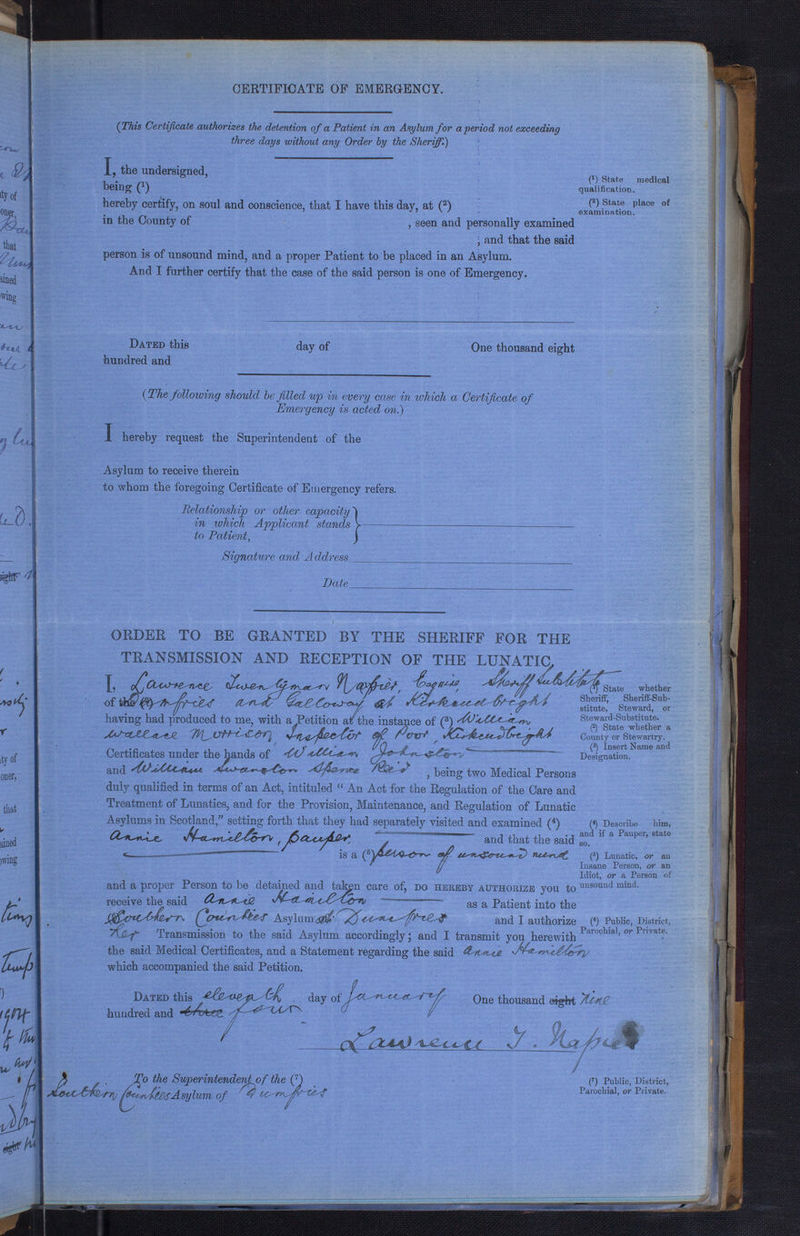 CERTIFICATE OF EMERGENCY.
(This Certificate authorizes the detention of a Patient in an Asylum for a period not exceeding
three days without any Order by the Sheriff.)
I, the undersigned,
being (1)
(1) State medical
qualification.
hereby certify, on soul and conscience, that I have this day, at (2)
(2) State place of
examination.
in the County of , seen and personally examined
; and that the said
person is of unsound mind, and a proper Patient to be placed in an Asylum.
And I further certify that the case of the said person is one of Emergency.
DATED this day of One thousand eight
hundred and
(The following should be filled up in every case in which a Certificate of
Emergency is acted on.)
I hereby request the Superintendent of the
Asylum to receive therein
to whom the foregoing Certificate of Emergency refers.
Relationship or other capacity
in which Applicant stands
to Patient,
Signature and Address
Date
ORDER TO BE GRANTED BY THE SHERIFF FOR THE
TRANSMISSION AND RECEPTION OF THE LUNATIC.
I, Lawrence Twentyman Napier, Esquire, Sheriff Substitute
of Dumfries and Galloway at Kirkcudbright
(1) State whether
Sheriff, Sheriff-Sub-
stitute, Steward, or
Steward-Substitute.
having had produced to me, with a Petition at the instance of (3) William
(2) State whether a
County or Stewartry.
Wallace Morrison, Inspector of Poor, Kirkcudbright
(3) Insert Name and
Designation.
Certificates under the hands of William Johnston
and William Swanston Spence Reid, being two Medical Persons
duly qualified in terms of an Act, intituled "An Act for the Regulation of the Care and
Treatment of Lunatics, and for the Provision, Maintenance, and Regulation of Lunatic
Asylums in Scotland," setting forth that they had separately visited and examined (4)
(4) Describe him,
and if a Pauper, state
so.
Annie Hamilton, pauper. and that the said
is a (5) person of unsound mind
(5) Lunatic, or an
Insane Person, or an
Idiot, or a Person of
unsound mind.
and a proper Person to be detained and taken care of, DO HEREBY AUTHORIZE you to
receive the said Annie Hamilton as a Patient into the
Southern Counties Asylum at Dumfries and I authorize
(6) Public, District,
Parochial, or Private.
her Transmission to the said Asylum accordingly; and I transmit you herewith
the said Medical Certificates, and a Statement regarding the said Annie Hamilton
which accompanied the said Petition.
DATED this eleventh day of January One thousand eight nine
hundred and three four
Lawrence T. Napier
To the Superintendent of the (7)
Southern Counties Asylum of Dumfries
(7) Public, District,
Parochial, or Private.